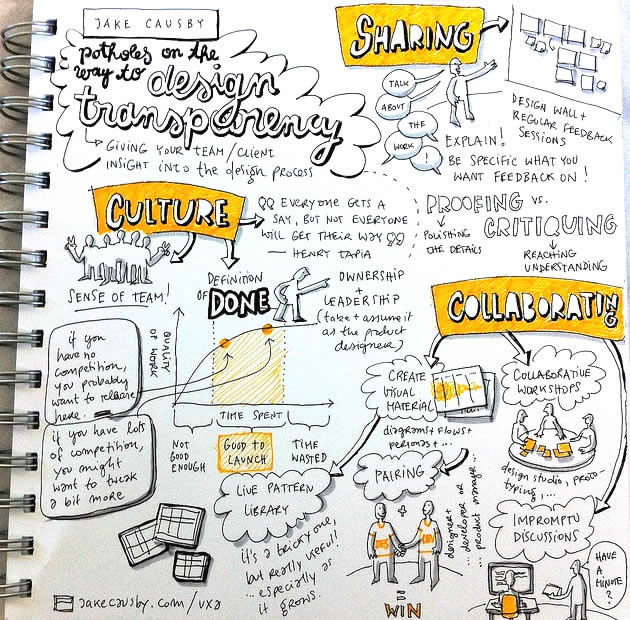 JAKE CAUSBY
potholes on the
way to design
transparency
GIVING YOUR TEAM/CLIENT
INSIGHT INTO THE DESIGN PROCESS
SHARING
TALK
ABOUT
THE
WORK
!
EXPLAIN!
BE SPECIFIC WHAT YOU
WANT FEEDBACK ON!
DESIGN WALL +
REGULAR FEEDBACK
SESSIONS
PROOFING vs.
CRITIQUING
POLISHING
THE DETAILS
REACHING
UNDERSTANDING
CULTURE
QQ EVERYONE GETS A
SAY, BUT NOT EVERYONE
WILL GET THEIR WAY QQ
— HENRY TAPIA
SENSE OF TEAM!
DEFINITION
OF DONE
OWNERSHIP
+
LEADERSHIP
(take + assume it
as the product
designer)
if you
have no
competition,
you probably
want to release
here.
if you have lots
of competition
you might
want to tweak
a bit more
QUALITY
OF WORK
TIME SPENT
NOT
GOOD
ENOUGH
GOOD TO
LAUNCH
TIME
WASTED
COLLABORATING
CREATE
VISUAL
MATERIAL
diagrams + flows +
personas + ...
COLLABORATIVE
WORKSHOPS
design studio, proto-
typing, ...
LIVE PATTERN
LIBRARY
it's a tricky one,
but really useful!
... especially as
it grows.
PAIRING
+
DES
DEV
= WIN
designer +
... developer or
... product manager ...
IMPROMPTU
DISCUSSIONS
HAVE
A
MINUTE
?
jakecausby.com/ux2